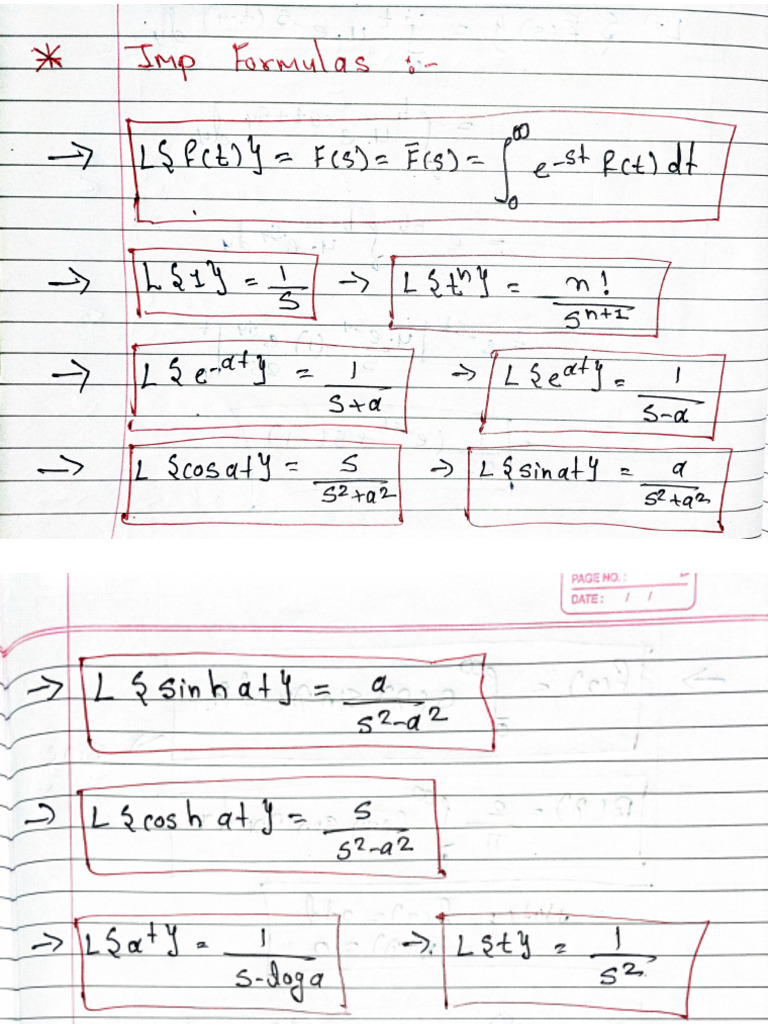 * Imp Formulas :-
→ L{f(t)} = F(s) = F̄(s) = ∫₀^∞ e^-st f(t) dt
→ L{1} = 1/s → L{tⁿ} = n!/s^n+1
→ L{e^-at} = 1/s+a → L{e^at} = 1/s-a
→ L{cosat} = s/s²+a² → L{sinat} = a/s²+a²
PAGE NO.:
DATE: / /
→ L{sinhat} = a/s²-a²
→ L{coshat} = s/s²-a²
→ L{a^t} = 1/s-loga → L{t} = 1/s²